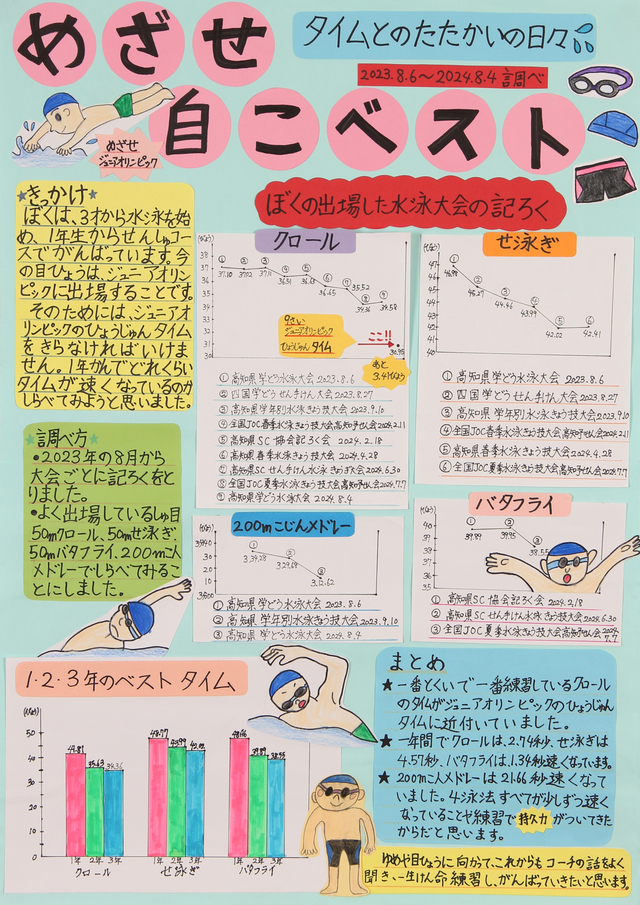 めざせ
自こベスト
タイムとのたたかいの日々
2023.8.6～2024.8.4 調べ
めざせ
ジュニアオリンピック
きっかけ
ぼくは、3才から水泳を始
め、1年生からせんしゅコー
スでがんばっています。今
の目ひょうは、ジュニアオリン
ピックに出場することです。
そのためには、ジュニアオ
リンピックのひょうじゅんタイム
をきらなければいけま
せん。1年かんでどれくらい
タイムが速くなっているのか
しらべてみようと思いました。
調べ方
●2023年の8月から
大会ごとに記ろくをと
りました。
●よく出場しているしゅ目
50mクロール、50mせ泳ぎ、
50mバタフライ、200m個人
メドレーでしらべてみるこ
とにしました。
ぼくの出場した水泳大会の記ろく
クロール
(びょう)
38
37
36
35
34
33
32
31
30
① ② ③ ④ ⑤ ⑥ ⑦ ⑧ ⑨
37.10 37.02 37.11 36.51 36.63 35.52
36.65 34.36 34.58
9さい
ジュニアオリンピック
ひょうじゅんタイム
ここ!!
30.95
あと
① 高知県学どう水泳大会 2023.8.6
② 四国学どうせん手けん大会 2023.8.27
③ 高知県学年別水泳きょう技大会 2023.9.10
④ 全国JOC春季水泳きょう技大会高知予せん会 2024.2.11
⑤ 高知県SC協会記ろく会 2024.2.18
⑥ 高知県春季水泳きょう技大会 2024.4.28
⑦ 高知県SCせん手けん水泳きょうぎ大会 2024.6.30
⑧ 全国JOC夏季水泳きょう技大会高知予せん会 2024.7.7
⑨ 高知県学どう水泳大会 2024.8.4
せ泳ぎ
(びょう)
47
46
45
44
43
42
41
40
① ② ③ ④ ⑤ ⑥
46.98 45.27 44.46 43.99 42.02 42.41
① 高知県学どう水泳大会 2023.8.6
② 四国学どうせん手けん大会 2023.8.27
③ 高知県学年別水泳きょう技大会 2023.9.10
④ 全国JOC春季水泳きょう技大会高知予せん会 2024.2.11
⑤ 高知県春季水泳きょう技大会 2024.4.28
⑥ 全国JOC夏季水泳きょう技大会高知予せん会 2024.7.7
200mこじんメドレー
① ② ③
3.34.28 3.29.68 3.12.62
① 高知県学どう水泳大会 2023.8.6
② 高知県学年別水泳きょう技大会 2023.9.10
③ 高知県学どう水泳大会 2024.8.4
バタフライ
(びょう)
40
39
38
37
36
35
① ② ③
39.89 39.95 38.55
① 高知県SC協会記ろく会 2024.2.18
② 高知県SCせん手けん水泳きょう技大会 2024.6.30
③ 全国JOC夏季水泳きょう技大会高知予せん会 2024.7.7
1・2・3年のベストタイム
(びょう)
50
40
30
20
10
0
41.81 35.63 34.36
1年 2年 3年
クロール
1年 2年 3年
せ泳ぎ
38.55
1年 2年 3年
バタフライ
まとめ
★一番とくいで一番練習しているクロール
のタイムがジュニアオリンピックのひょうじゅん
タイムに近付いていました。
★一年間でクロールは、2.74秒、せ泳ぎは
4.57秒、バタフライは、1.34秒速くなっています。
★200m個人メドレーは21.66秒速くなって
いました。4泳法すべてが少しずつ速く
なっていることや練習で持久力がついてきた
からだと思います。
ゆめや目ひょうに向かって、これからもコーチの話をよく
聞き、一生けん命練習し、がんばっていきたいと思います。